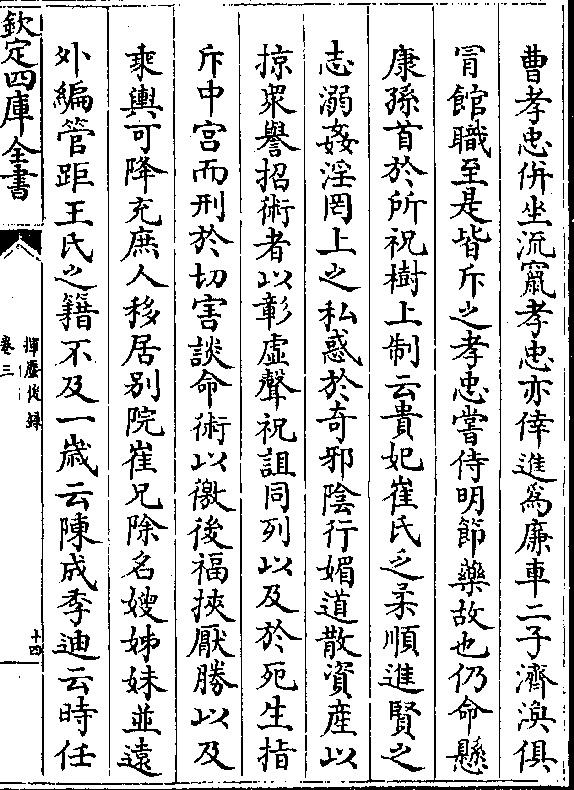 曹孝忠併坐流竄孝忠亦倖進爲廉車二子濟渙俱
冐館職至是皆斥之孝忠嘗侍明節藥故也仍命懸
康孫首於所祝樹上制云貴妃崔氏乏柔順進賢之
志溺姦淫罔上之私惑於奇邪陰行媚道散資産以
掠衆譽招術者以彰虛聲祝詛同列以及於死生指
斥中宮而刑於切害談命術以徼後福挾厭勝以及
乘輿可降充庶人移居别院崔兄除名嫂姊妹並遠
外編管距王氏之籍不及一嵗云陳成季迪云時任
欽定四庫全書
揮麈後録
卷三
十四